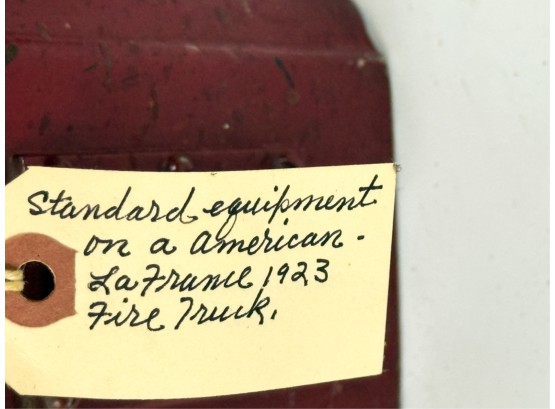 Standard equipment
on a American -
LaFrance 1923
Fire Truck.